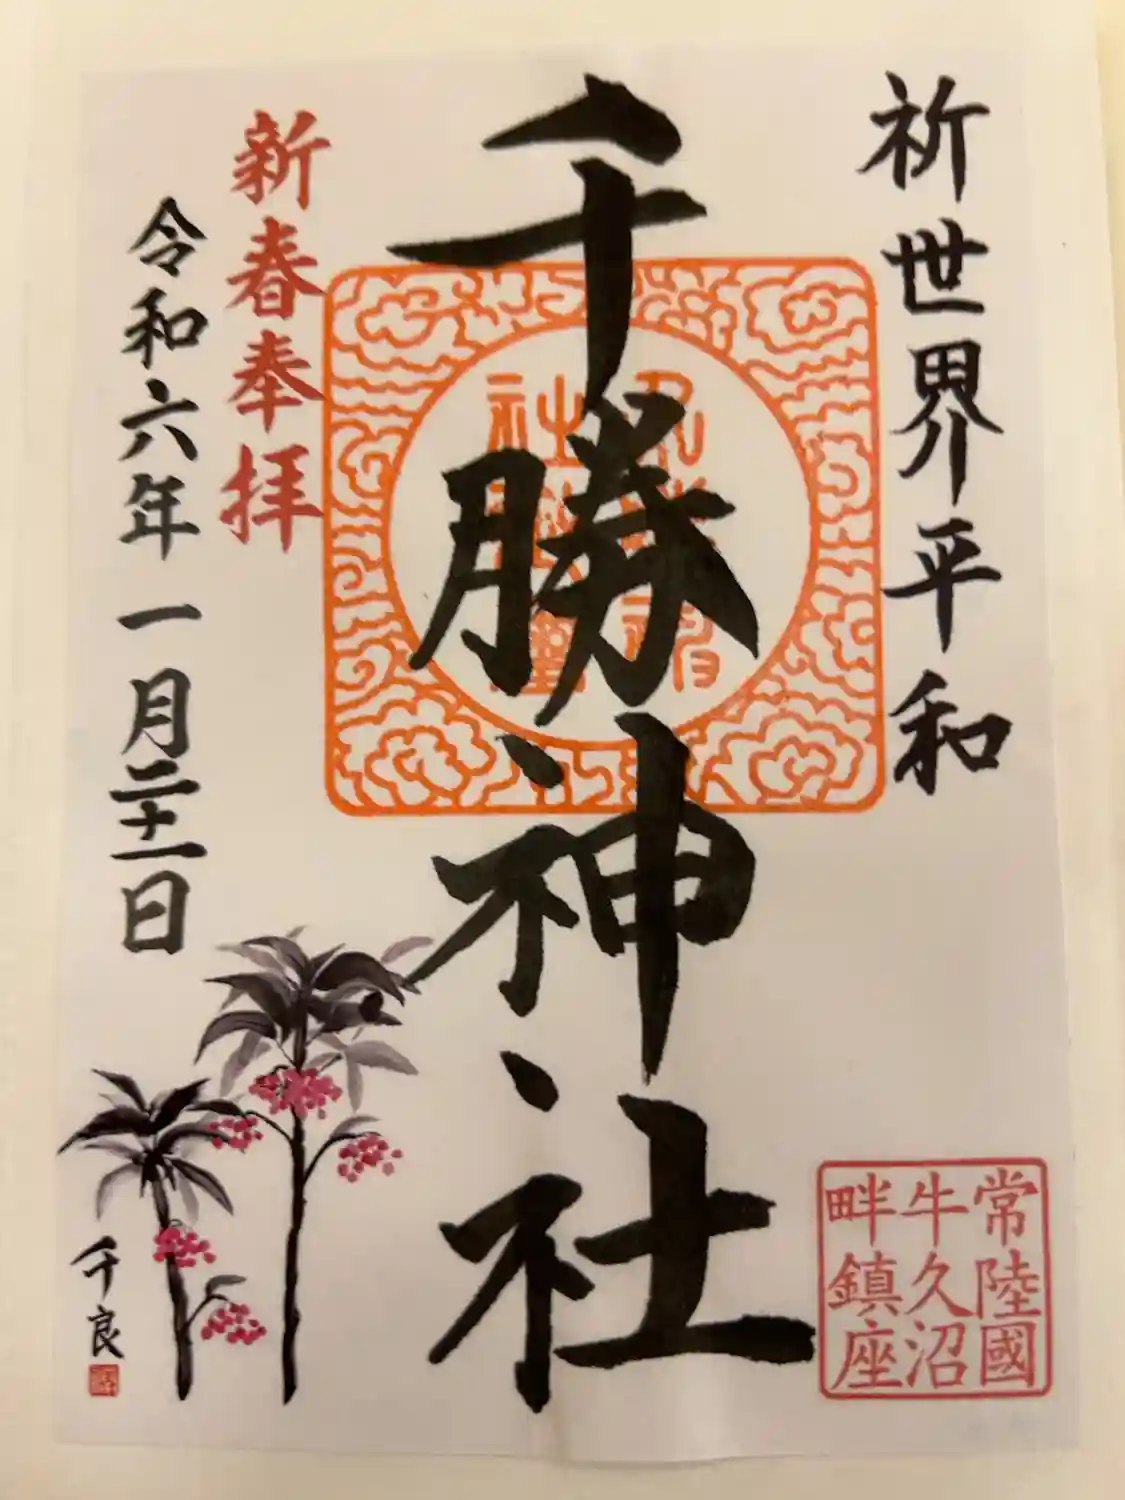 祈世界平和
常陸國
牛久沼
畔鎮座
千勝神社
新春奉拝
令和六年一月二十一日
千良